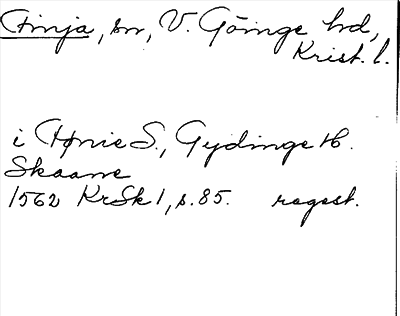 Finja, sn, V. Göinge hd,
Krist. l.
i Fynie S., Gydinge H.
Skaane
1562 KrSk 1, s. 85. regest.